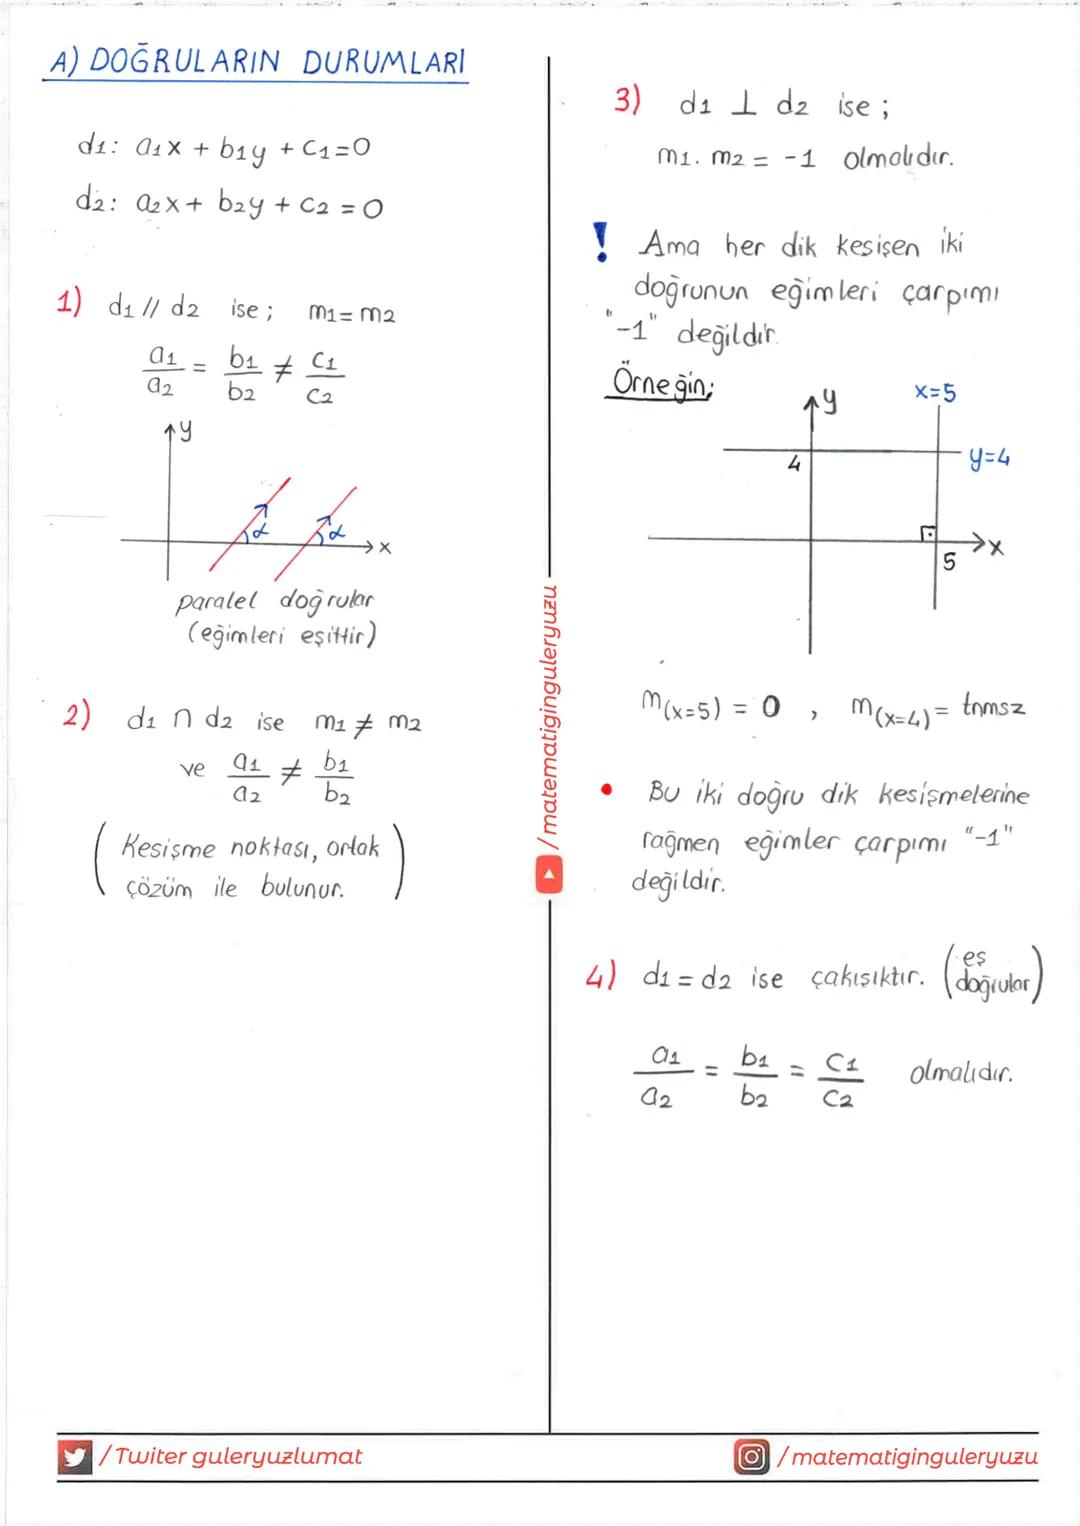 A) DOĞRULARIN DURUMLARI
d1: a1x + b1y + c1=0
d2: a2x + b2y + c2 = 0
1) d1 // d2 ise ; m1= m2
a1/a2 = b1/b2 ≠ c1/c2
y
α α
x
paralel doğrular
(eğimleri eşittir)
2) d1 ∩ d2 ise m1 ≠ m2
ve a1/a2 ≠ b1/b2
(Kesişme noktası, ortak
çözüm ile bulunur.)
/matematiginguleryuzu
3) d1 ⊥ d2 ise ;
m1. m2 = -1 olmalıdır.
! Ama her dik kesişen iki
doğrunun eğimleri çarpımı
"-1" değildir.
Örneğin;
y x=5
4 y=4
x
5
m(x=5) = 0 , m(x=4) = tnmsz
• Bu iki doğru dik kesişmelerine
rağmen eğimler çarpımı "-1"
değildir.
4) d1 = d2 ise çakışıktır. (eş
doğrular)
a1/a2 = b1/b2 = c1/c2 olmalıdır.
/Twiter guleryuzlumat
/matematiginguleryuzu